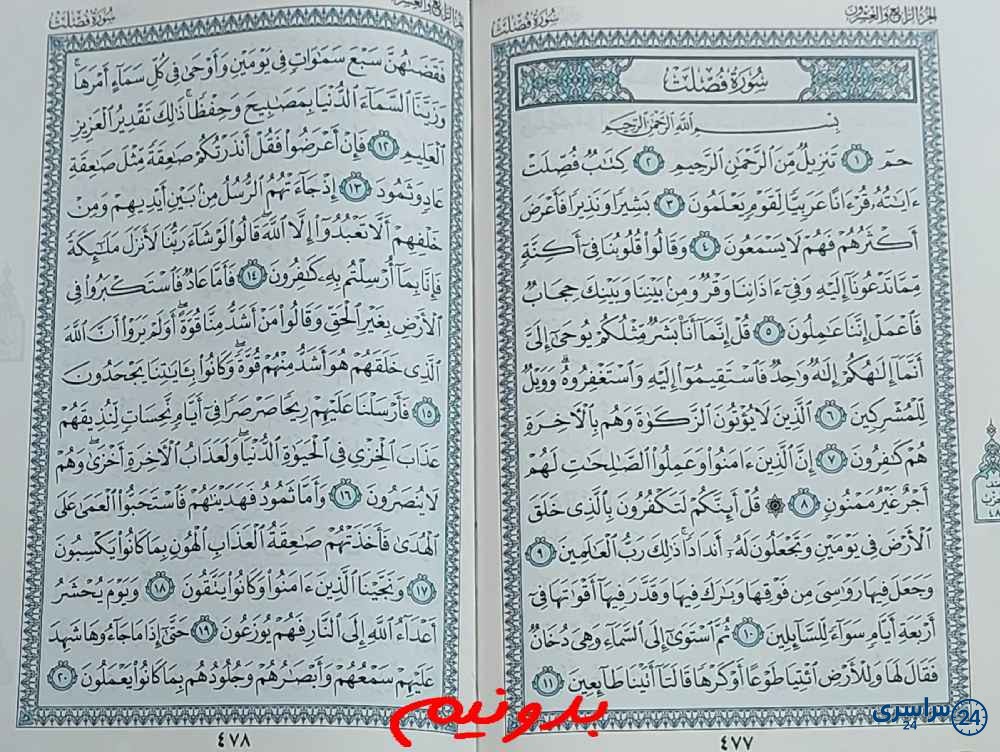 الجزء الرابع والعشرون
سورة فصلت
سُورَةُ فُصِّلَتْ
بِسْمِ ٱللَّهِ ٱلرَّحْمَٰنِ ٱلرَّحِيمِ
حمٓ ١ تَنزِيلٌ مِّنَ ٱلرَّحْمَٰنِ ٱلرَّحِيمِ ٢ كِتَٰبٌ فُصِّلَتْ
ءَايَٰتُهُۥ قُرْءَانًا عَرَبِيًّا لِّقَوْمٍ يَعْلَمُونَ ٣ بَشِيرًا وَنَذِيرًا فَأَعْرَضَ
أَكْثَرُهُمْ فَهُمْ لَا يَسْمَعُونَ ٤ وَقَالُوا۟ قُلُوبُنَا فِىٓ أَكِنَّةٍ
مِّمَّا تَدْعُونَآ إِلَيْهِ وَفِىٓ ءَاذَانِنَا وَقْرٌ وَمِنۢ بَيْنِنَا وَبَيْنِكَ حِجَابٌ
فَٱعْمَلْ إِنَّنَا عَٰمِلُونَ ٥ قُلْ إِنَّمَآ أَنَا۠ بَشَرٌ مِّثْلُكُمْ يُوحَىٰٓ إِلَىَّ
أَنَّمَآ إِلَٰهُكُمْ إِلَٰهٌ وَٰحِدٌ فَٱسْتَقِيمُوٓا۟ إِلَيْهِ وَٱسْتَغْفِرُوهُ ۗ وَوَيْلٌ
لِّلْمُشْرِكِينَ ٦ ٱلَّذِينَ لَا يُؤْتُونَ ٱلزَّكَوٰةَ وَهُم بِٱلْءَاخِرَةِ
هُمْ كَٰفِرُونَ ٧ إِنَّ ٱلَّذِينَ ءَامَنُوا۟ وَعَمِلُوا۟ ٱلصَّٰلِحَٰتِ لَهُمْ
أَجْرٌ غَيْرُ مَمْنُونٍ ٨ ۞ قُلْ أَئِنَّكُمْ لَتَكْفُرُونَ بِٱلَّذِى خَلَقَ
ٱلْأَرْضَ فِى يَوْمَيْنِ وَتَجْعَلُونَ لَهُۥٓ أَندَادًا ۚ ذَٰلِكَ رَبُّ ٱلْعَٰلَمِينَ ٩
وَجَعَلَ فِيهَا رَوَٰسِىَ مِن فَوْقِهَا وَبَٰرَكَ فِيهَا وَقَدَّرَ فِيهَآ أَقْوَٰتَهَا فِىٓ
أَرْبَعَةِ أَيَّامٍ سَوَآءً لِّلسَّآئِلِينَ ١٠ ثُمَّ ٱسْتَوَىٰٓ إِلَى ٱلسَّمَآءِ وَهِىَ دُخَانٌ
فَقَالَ لَهَا وَلِلْأَرْضِ ٱئْتِيَا طَوْعًا أَوْ كَرْهًا قَالَتَآ أَتَيْنَا طَآئِعِينَ ١١
٤٧٧
الجزء الرابع والعشرون
سورة فصلت
فَقَضَىٰهُنَّ سَبْعَ سَمَٰوَاتٍ فِى يَوْمَيْنِ وَأَوْحَىٰ فِى كُلِّ سَمَآءٍ أَمْرَهَا ۚ
وَزَيَّنَّا ٱلسَّمَآءَ ٱلدُّنْيَا بِمَصَٰبِيحَ وَحِفْظًا ۚ ذَٰلِكَ تَقْدِيرُ ٱلْعَزِيزِ
ٱلْعَلِيمِ ١٢ فَإِنْ أَعْرَضُوا۟ فَقُلْ أَنذَرْتُكُمْ صَٰعِقَةً مِّثْلَ صَٰعِقَةِ
عَادٍ وَثَمُودَ ١٣ إِذْ جَآءَتْهُمُ ٱلرُّسُلُ مِنۢ بَيْنِ أَيْدِيهِمْ وَمِنْ
خَلْفِهِمْ أَلَّا تَعْبُدُوٓا۟ إِلَّا ٱللَّهَ ۖ قَالُوا۟ لَوْ شَآءَ رَبُّنَا لَأَنزَلَ مَلَٰٓئِكَةً
فَإِنَّا بِمَآ أُرْسِلْتُم بِهِۦ كَٰفِرُونَ ١٤ فَأَمَّا عَادٌ فَٱسْتَكْبَرُوا۟ فِى
ٱلْأَرْضِ بِغَيْرِ ٱلْحَقِّ وَقَالُوا۟ مَنْ أَشَدُّ مِنَّا قُوَّةً ۖ أَوَلَمْ يَرَوْا۟ أَنَّ ٱللَّهَ
ٱلَّذِى خَلَقَهُمْ هُوَ أَشَدُّ مِنْهُمْ قُوَّةً ۖ وَكَانُوا۟ بِـَٔايَٰتِنَا يَجْحَدُونَ
١٥ فَأَرْسَلْنَا عَلَيْهِمْ رِيحًا صَرْصَرًا فِىٓ أَيَّامٍ نَّحِسَاتٍ لِّنُذِيقَهُمْ
عَذَابَ ٱلْخِزْىِ فِى ٱلْحَيَوٰةِ ٱلدُّنْيَا ۖ وَلَعَذَابُ ٱلْءَاخِرَةِ أَخْزَىٰ ۖ وَهُمْ
لَا يُنصَرُونَ ١٦ وَأَمَّا ثَمُودُ فَهَدَيْنَٰهُمْ فَٱسْتَحَبُّوا۟ ٱلْعَمَىٰ عَلَى
ٱلْهُدَىٰ فَأَخَذَتْهُمْ صَٰعِقَةُ ٱلْعَذَابِ ٱلْهُونِ بِمَا كَانُوا۟ يَكْسِبُونَ
١٧ وَنَجَّيْنَا ٱلَّذِينَ ءَامَنُوا۟ وَكَانُوا۟ يَتَّقُونَ ١٨ وَيَوْمَ يُحْشَرُ
أَعْدَآءُ ٱللَّهِ إِلَى ٱلنَّارِ فَهُمْ يُوزَعُونَ ١٩ حَتَّىٰٓ إِذَا مَا جَآءُوهَا شَهِدَ
عَلَيْهِمْ سَمْعُهُمْ وَأَبْصَٰرُهُمْ وَجُلُودُهُم بِمَا كَانُوا۟ يَعْمَلُونَ ٢٠
٤٧٨
بدونیم
سراسری
24
24